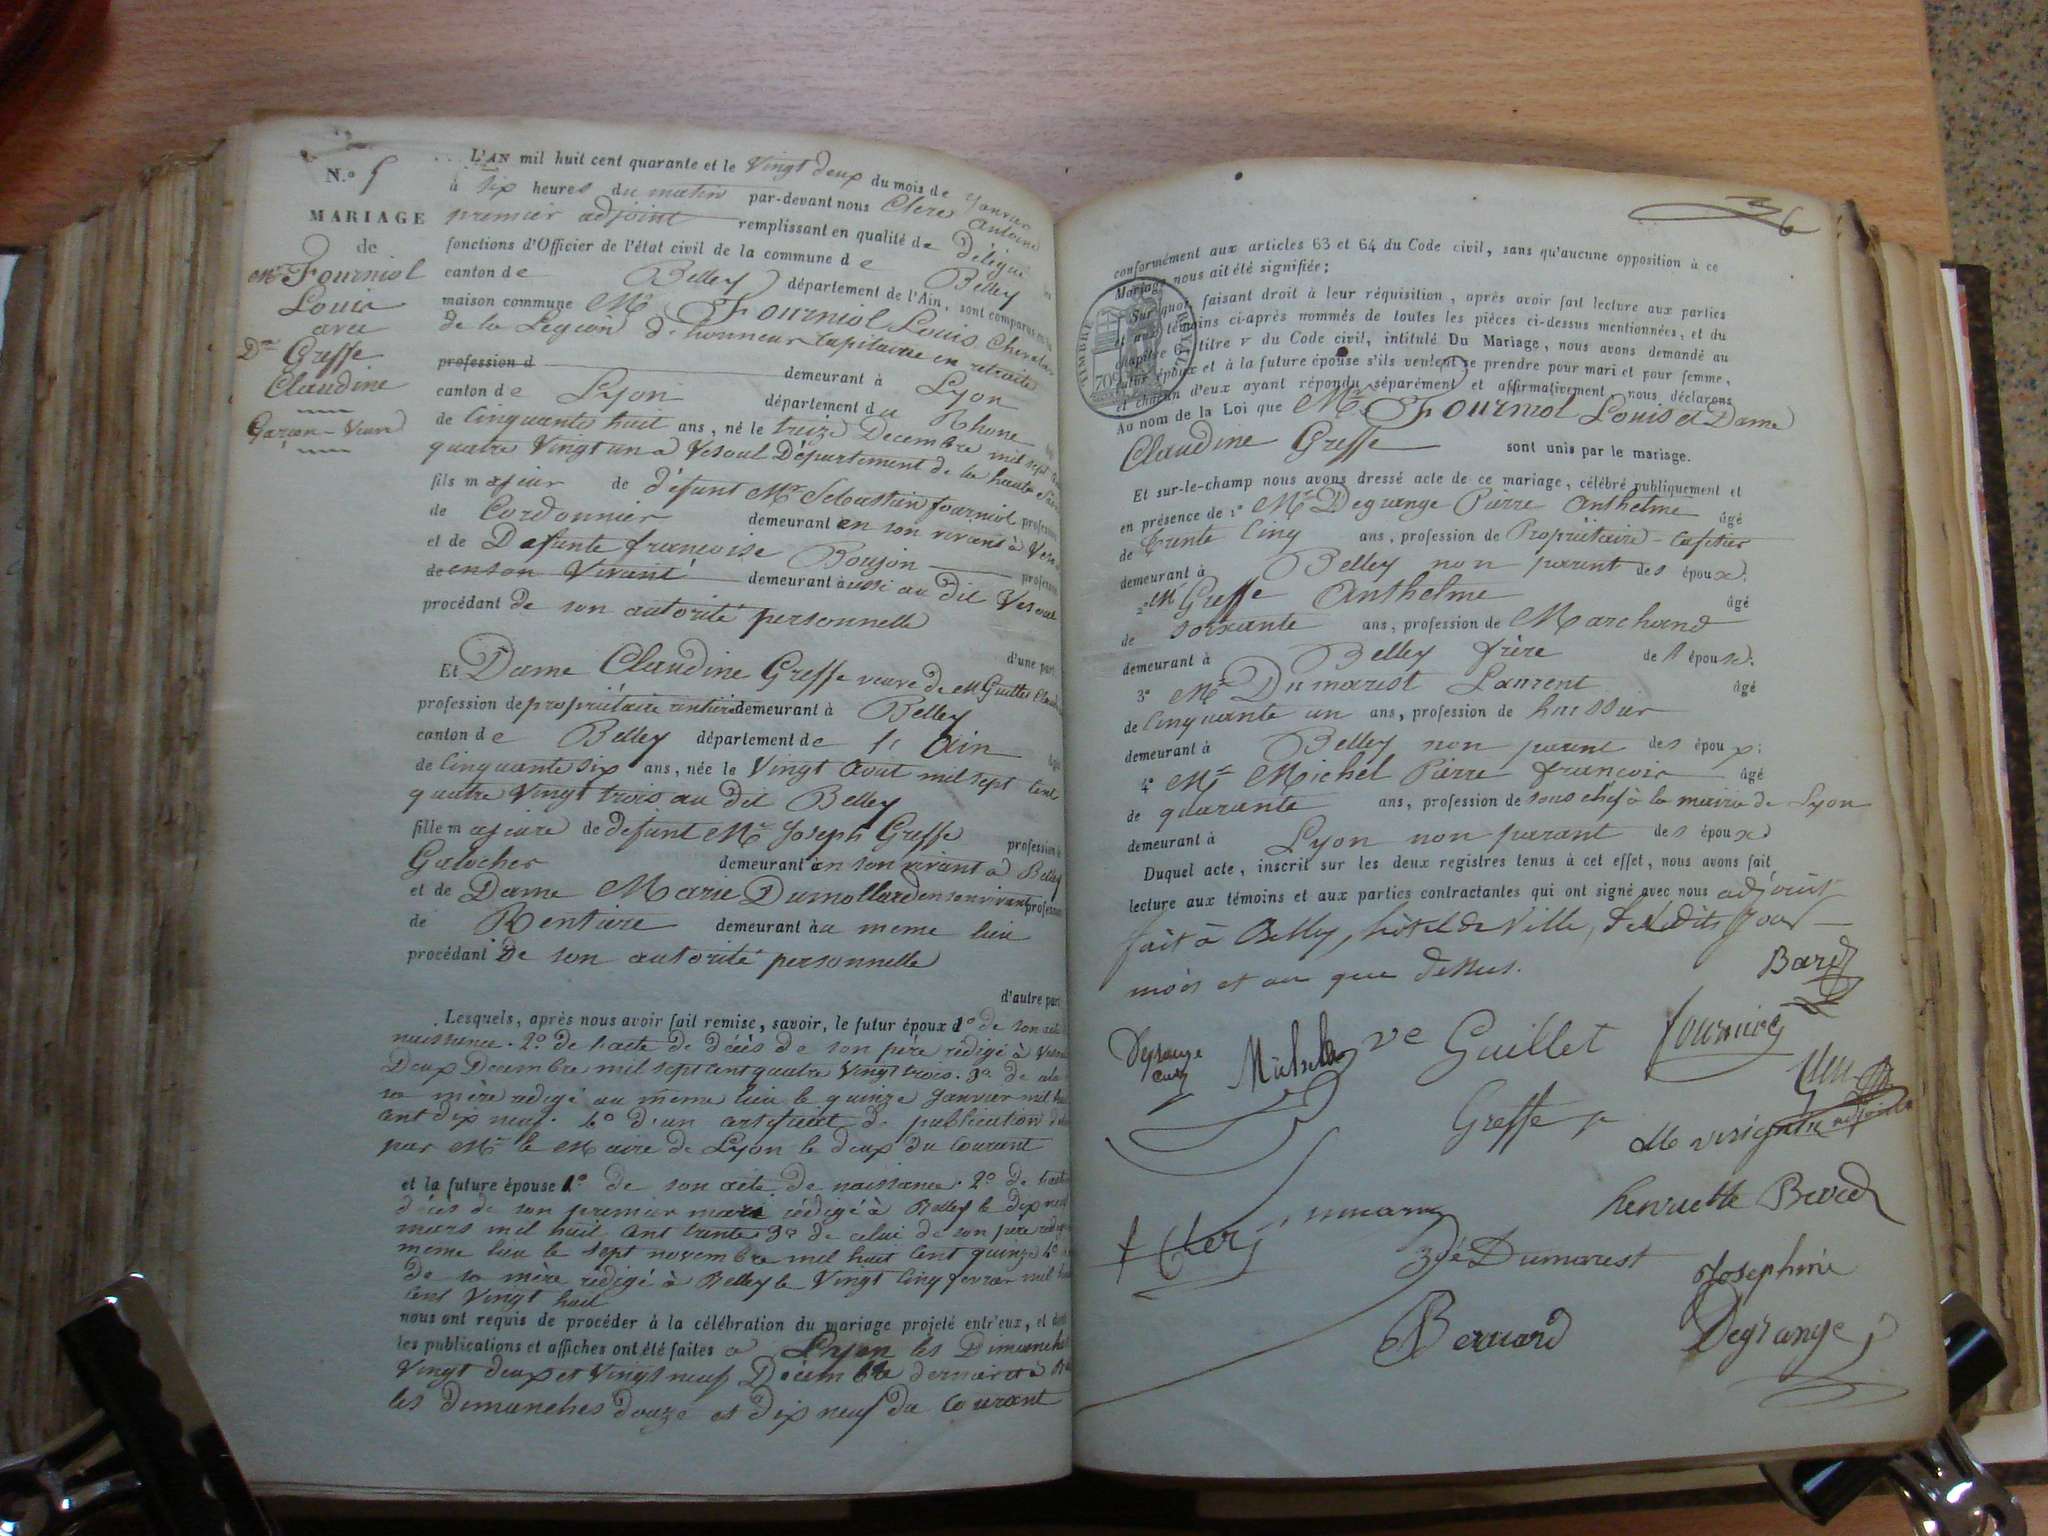 N.o 5
MARIAGE
de
Mr Fourniol
Louis
avec
Dme Greffe
Claudine
Garçon - Veuve
L'AN mil huit cent quarante et le Vingt deux du mois de Janvier
à six heures du matin par-devant nous Clerc Antoine
premier adjoint remplissant en qualité de Délégué
fonctions d'Officier de l'état civil de la commune de Belley
canton de Belley département de l'Ain, sont comparus en la
maison commune Mr Fourniol Louis Chevalier
de la Legion d'honneur Capitaine en retraite
profession d demeurant à Lyon
canton de Lyon département du Rhone
de Cinquante huit ans, né le treize Decembre mil sept cent
quatre Vingt un a Vesoul Département de la haute Saône
fils majeur de défunt Mr Sebastien fourniol profession
de Cordonnier demeurant en son vivant à Vesoul
et de Defunte francoise Boujon profession
de en son Vivant demeurant aussi au dit Vesoul
procédant de son autorité personnelle
d'une part
Et Dame Claudine Greffe veuve de Mr Guillet Claude
profession de propriétaire rentière demeurant à Belley
canton de Belley département de l'Ain âgée
de Cinquante six ans, née le Vingt Aout mil sept Cent
quatre Vingt trois au dit Belley
fille majeure de defunt Mr Joseph Greffe profession de
Galocher demeurant en son vivant a Belley
et de Dame Marie Dumollard en son vivant profession
de Rentiere demeurant au meme lieu
procédant De son autorité personnelle
d'autre part
Lesquels, après nous avoir fait remise, savoir, le futur époux 1o de son acte
naissance. 2o de l'acte de décès de son père rédigé à Vesoul
Deux Decembre mil sept cent quatre Vingt trois. 3o de
sa mère redigé au meme lieu le quinze Janvier mil huit
cent dix neuf. 4o d'un certificat de publication
par Mr le Maire de Lyon le deux du Courant
et la future épouse 1o de son acte de naissance. 2o de l'acte
décès de son premier mari rédigé à Belley le dix neuf
mars mil huit cent trente 3o de celui de son père rédigé
meme lieu le sept novembre mil huit Cent quinze 4o
de sa mère rédigé à Belley le Vingt Cinq fevrier mil huit
Cent Vingt huit
nous ont requis de procéder à la célébration du mariage projeté entr'eux, et dont
les publications et affiches ont été faites a Lyon les Dimanches
Vingt deux et Vingt neuf Décembre dernier et à
les dimanches douze et dix neuf du Courant
6
conformément aux articles 63 et 64 du Code civil, sans qu'aucune opposition à ce
Mariage nous ait été signifiée;
Sur quoi, faisant droit à leur réquisition, après avoir fait lecture aux parties
et aux témoins ci-après nommés de toutes les pièces ci-dessus mentionnées, et du
chapitre titre v du Code civil, intitulé Du Mariage, nous avons demandé au
futur époux et à la future épouse s'ils veulent se prendre pour mari et pour femme,
et chacun d'eux ayant répondu séparément et affirmativement, nous déclarons
Au nom de la Loi que Mr Fourniol Louis et Dame
Claudine Greffe sont unis par le mariage.
TIMBRE ROYAL
70c
Et sur-le-champ nous avons dressé acte de ce mariage, célébré publiquement et
en présence de 1o Mr Degrange Pierre Anthelme âgé
de Trente Cinq ans, profession de Propriétaire - Cafetier
demeurant à Belley non parent des époux;
2o Mr Greffe Anthelme âgé
de soixante ans, profession de Marchand
demeurant à Belley frère de l'épouse;
3o Mr Dumarest Laurent âgé
de Cinquante un ans, profession de huissier
demeurant à Belley non parent des époux;
4o Mr Michel Pierre francois âgé
de quarante ans, profession de sous chef à la mairie de Lyon
demeurant à Lyon non parent des époux
Duquel acte, inscrit sur les deux registres tenus à cet effet, nous avons fait
lecture aux témoins et aux parties contractantes qui ont signé avec nous adjoint
fait à Belley, hôtel de Ville, lesdits jour
mois et an que dessus.
Degrange
Michel
Ve Guillet
fourniol
Greffe
henriette
Zoé Dumarest
Josephine
Bernard
Degrange